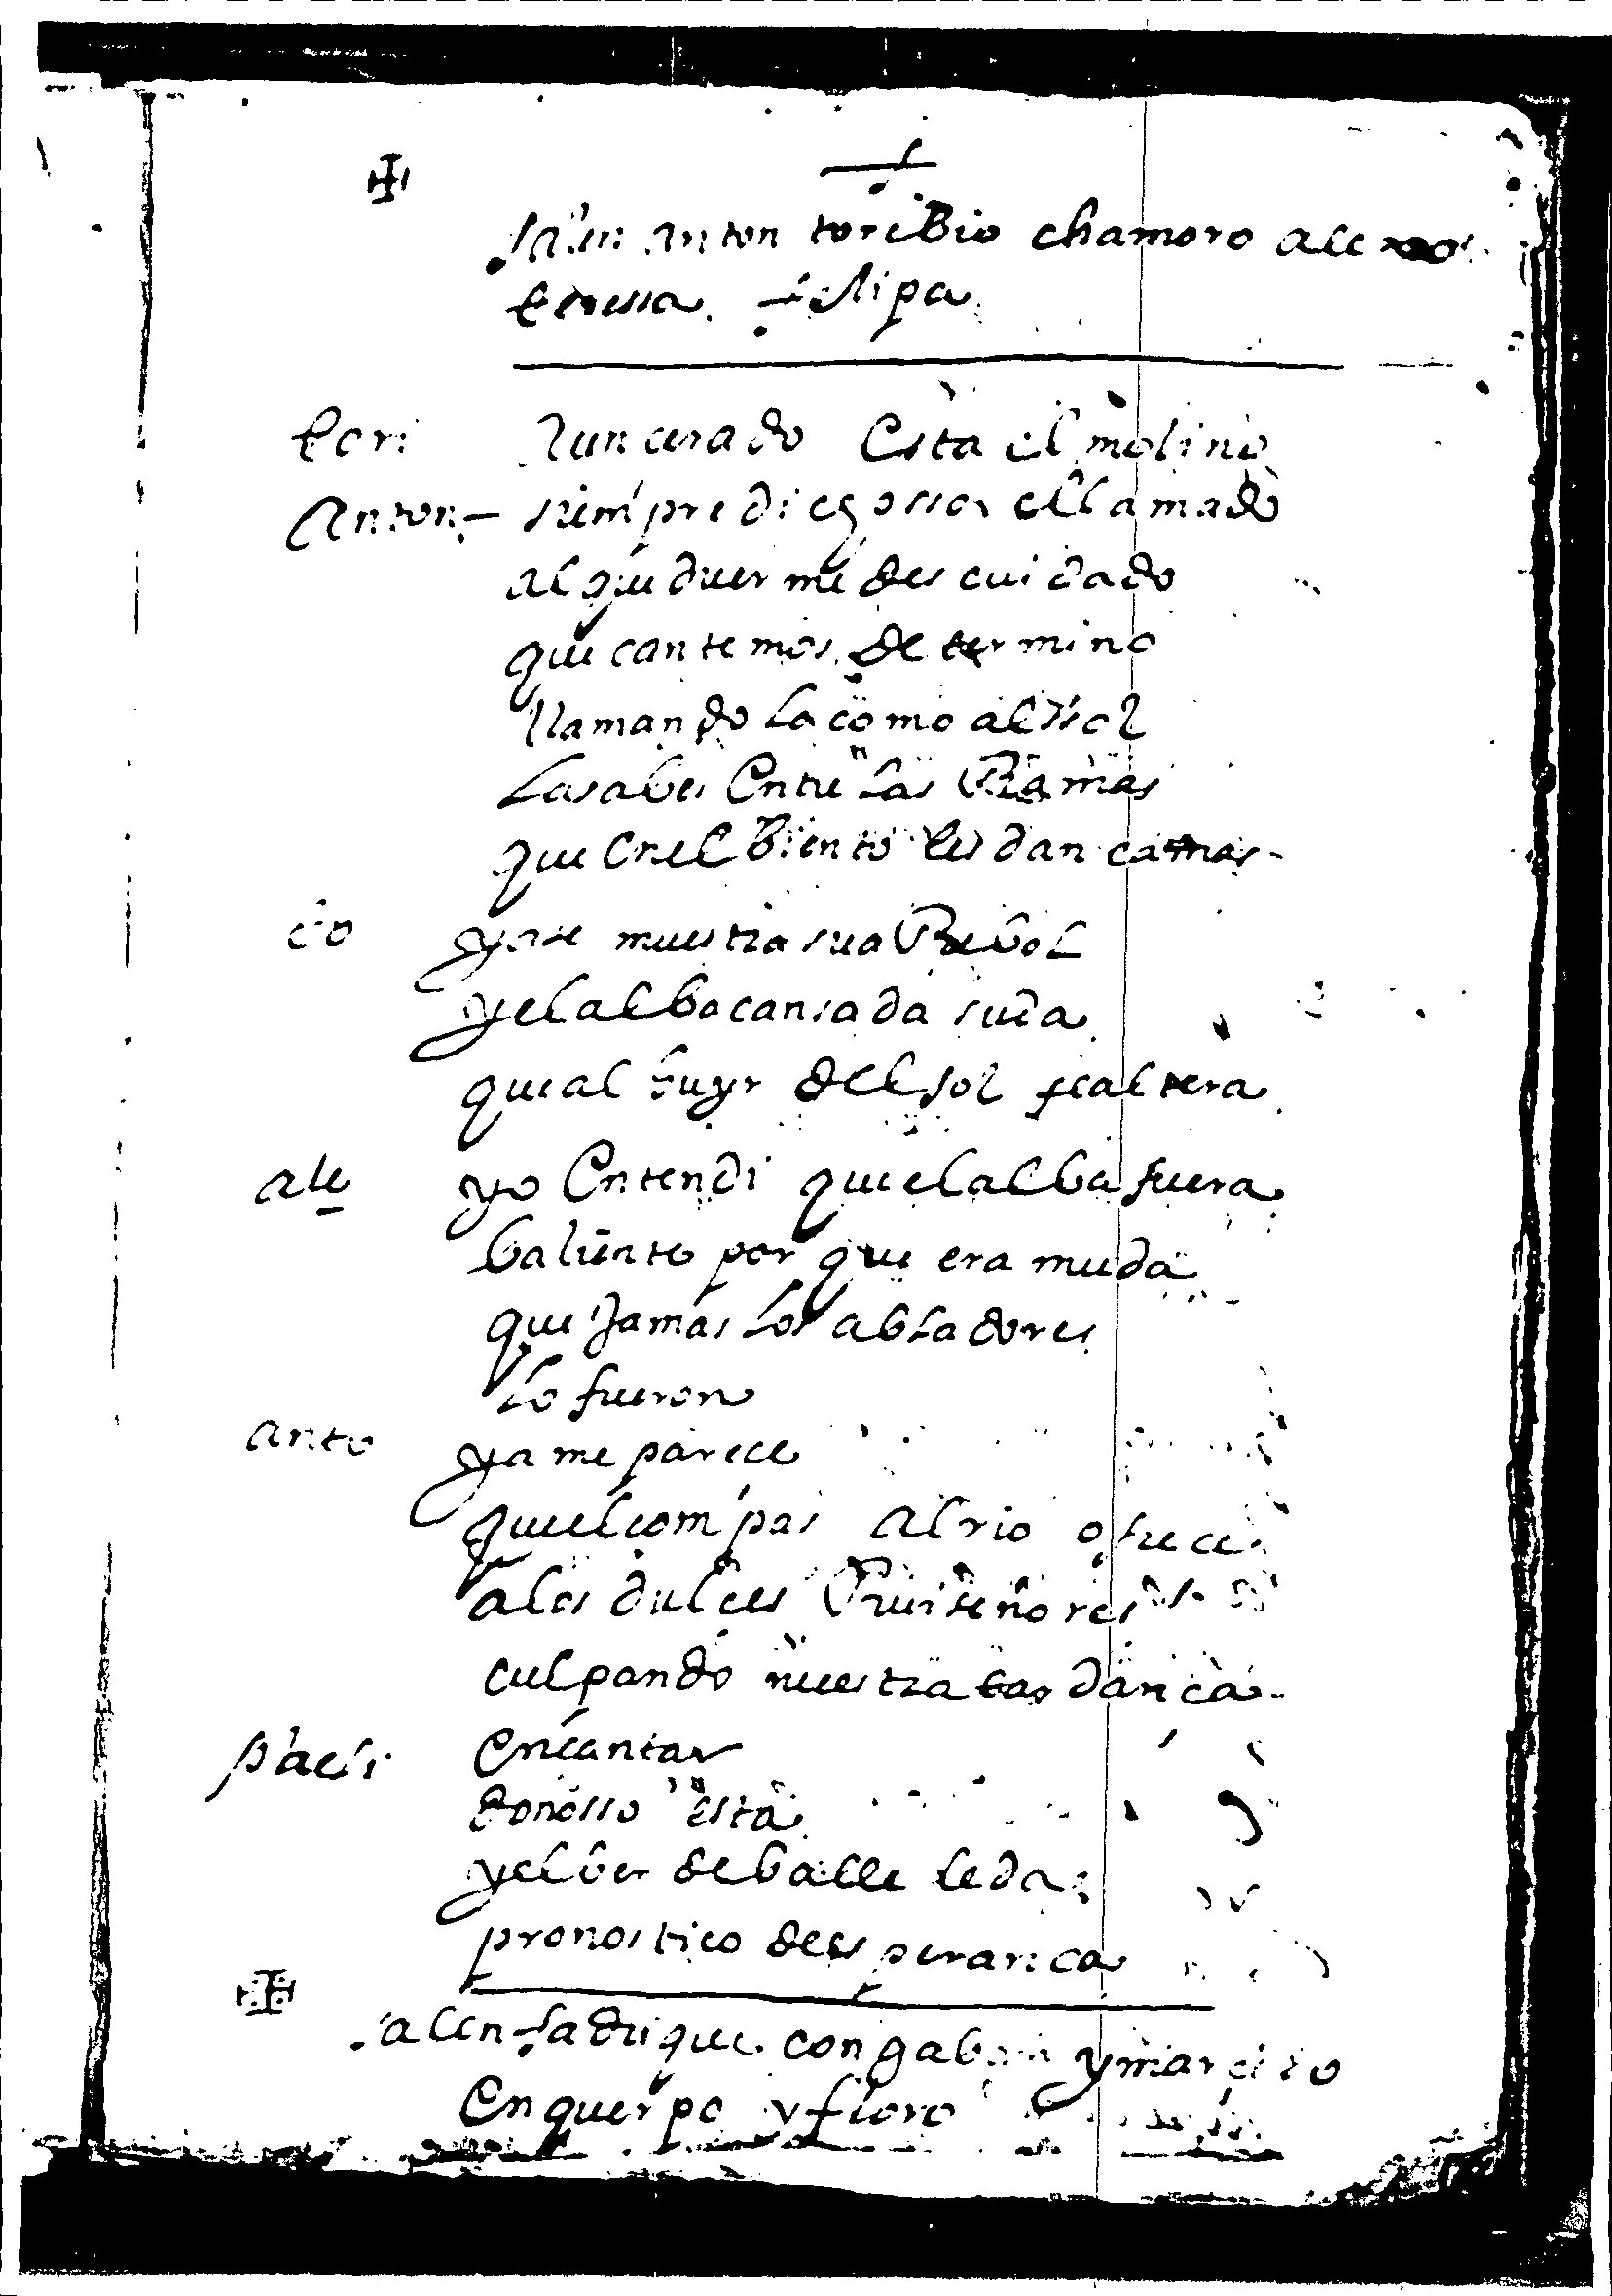 salen anton toribio chamoro ale
teressa felipa
tori aun cerado esta el molino
anton siempre diegossoi ellamado
al que duerme descuidado
que cantemos determino
llamando la como al sol
las abes entre las Ramas
que en el biento les dan camas
co ya se muestra su aRebol
y el alba cansada suda
que al huyr del sol se altera
ale yo entendi que el alba fuera
baliente por que era muda
que jamas los abladores
lo fueron
anto ya me parece
que el compas al rio ofrece
a los dulces Ruiseñores
culpando nuestra tardança
en cantar
donosso esta
y el ber de balle le da
pronostico desperança
salen fadrique con gaban y
en querpo y